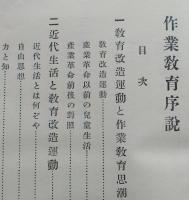 作業教育序説
目次
一 教育改造運動と作業教育思潮
教育改造運動
產業革命以前の兒童生活
產業革命前後の對照
二 近代生活と教育改造運動
近代生活とは何ぞや
自由思想
力と知